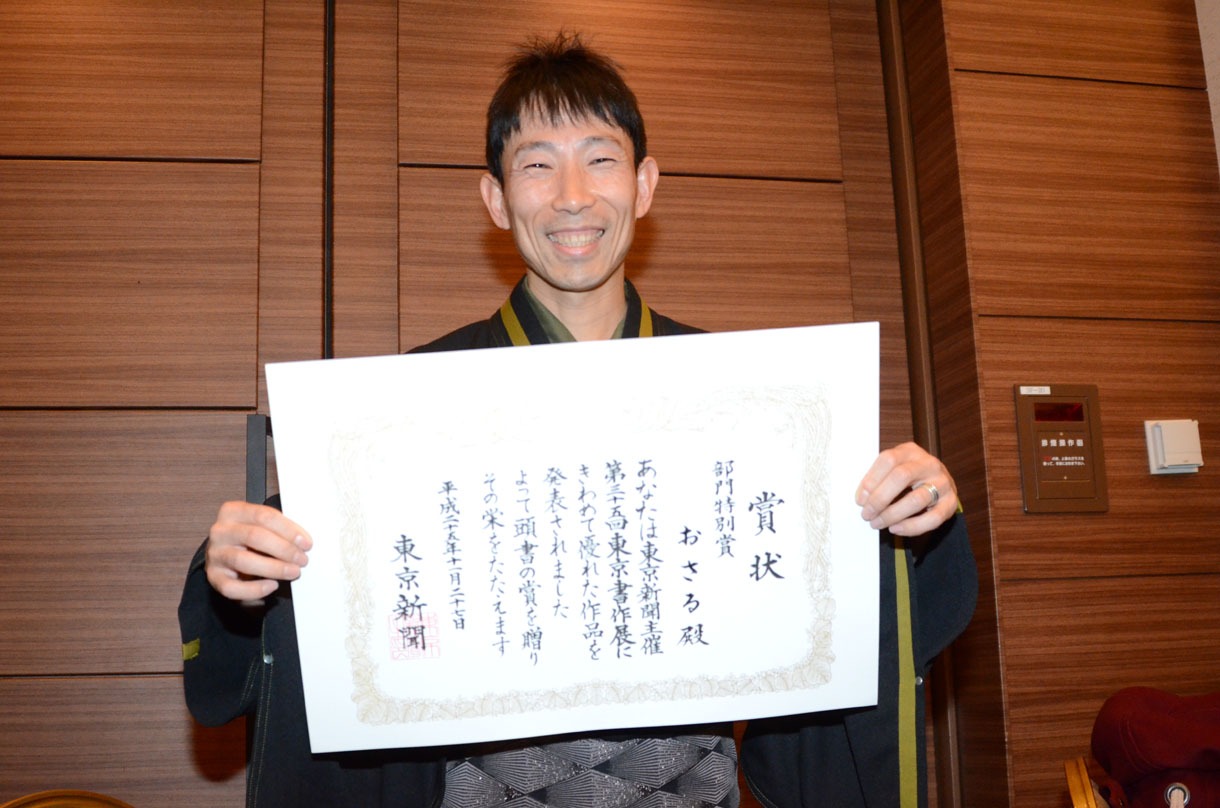 賞状
部門特別賞
おさる殿
あなたは東京新聞主催
第三十五回東京書作展に
きわめて優れた作品を
発表されました
よって頭書の賞を贈り
その栄をたたえます
平成二十五年十一月二十七日
東京新聞
排煙操作器